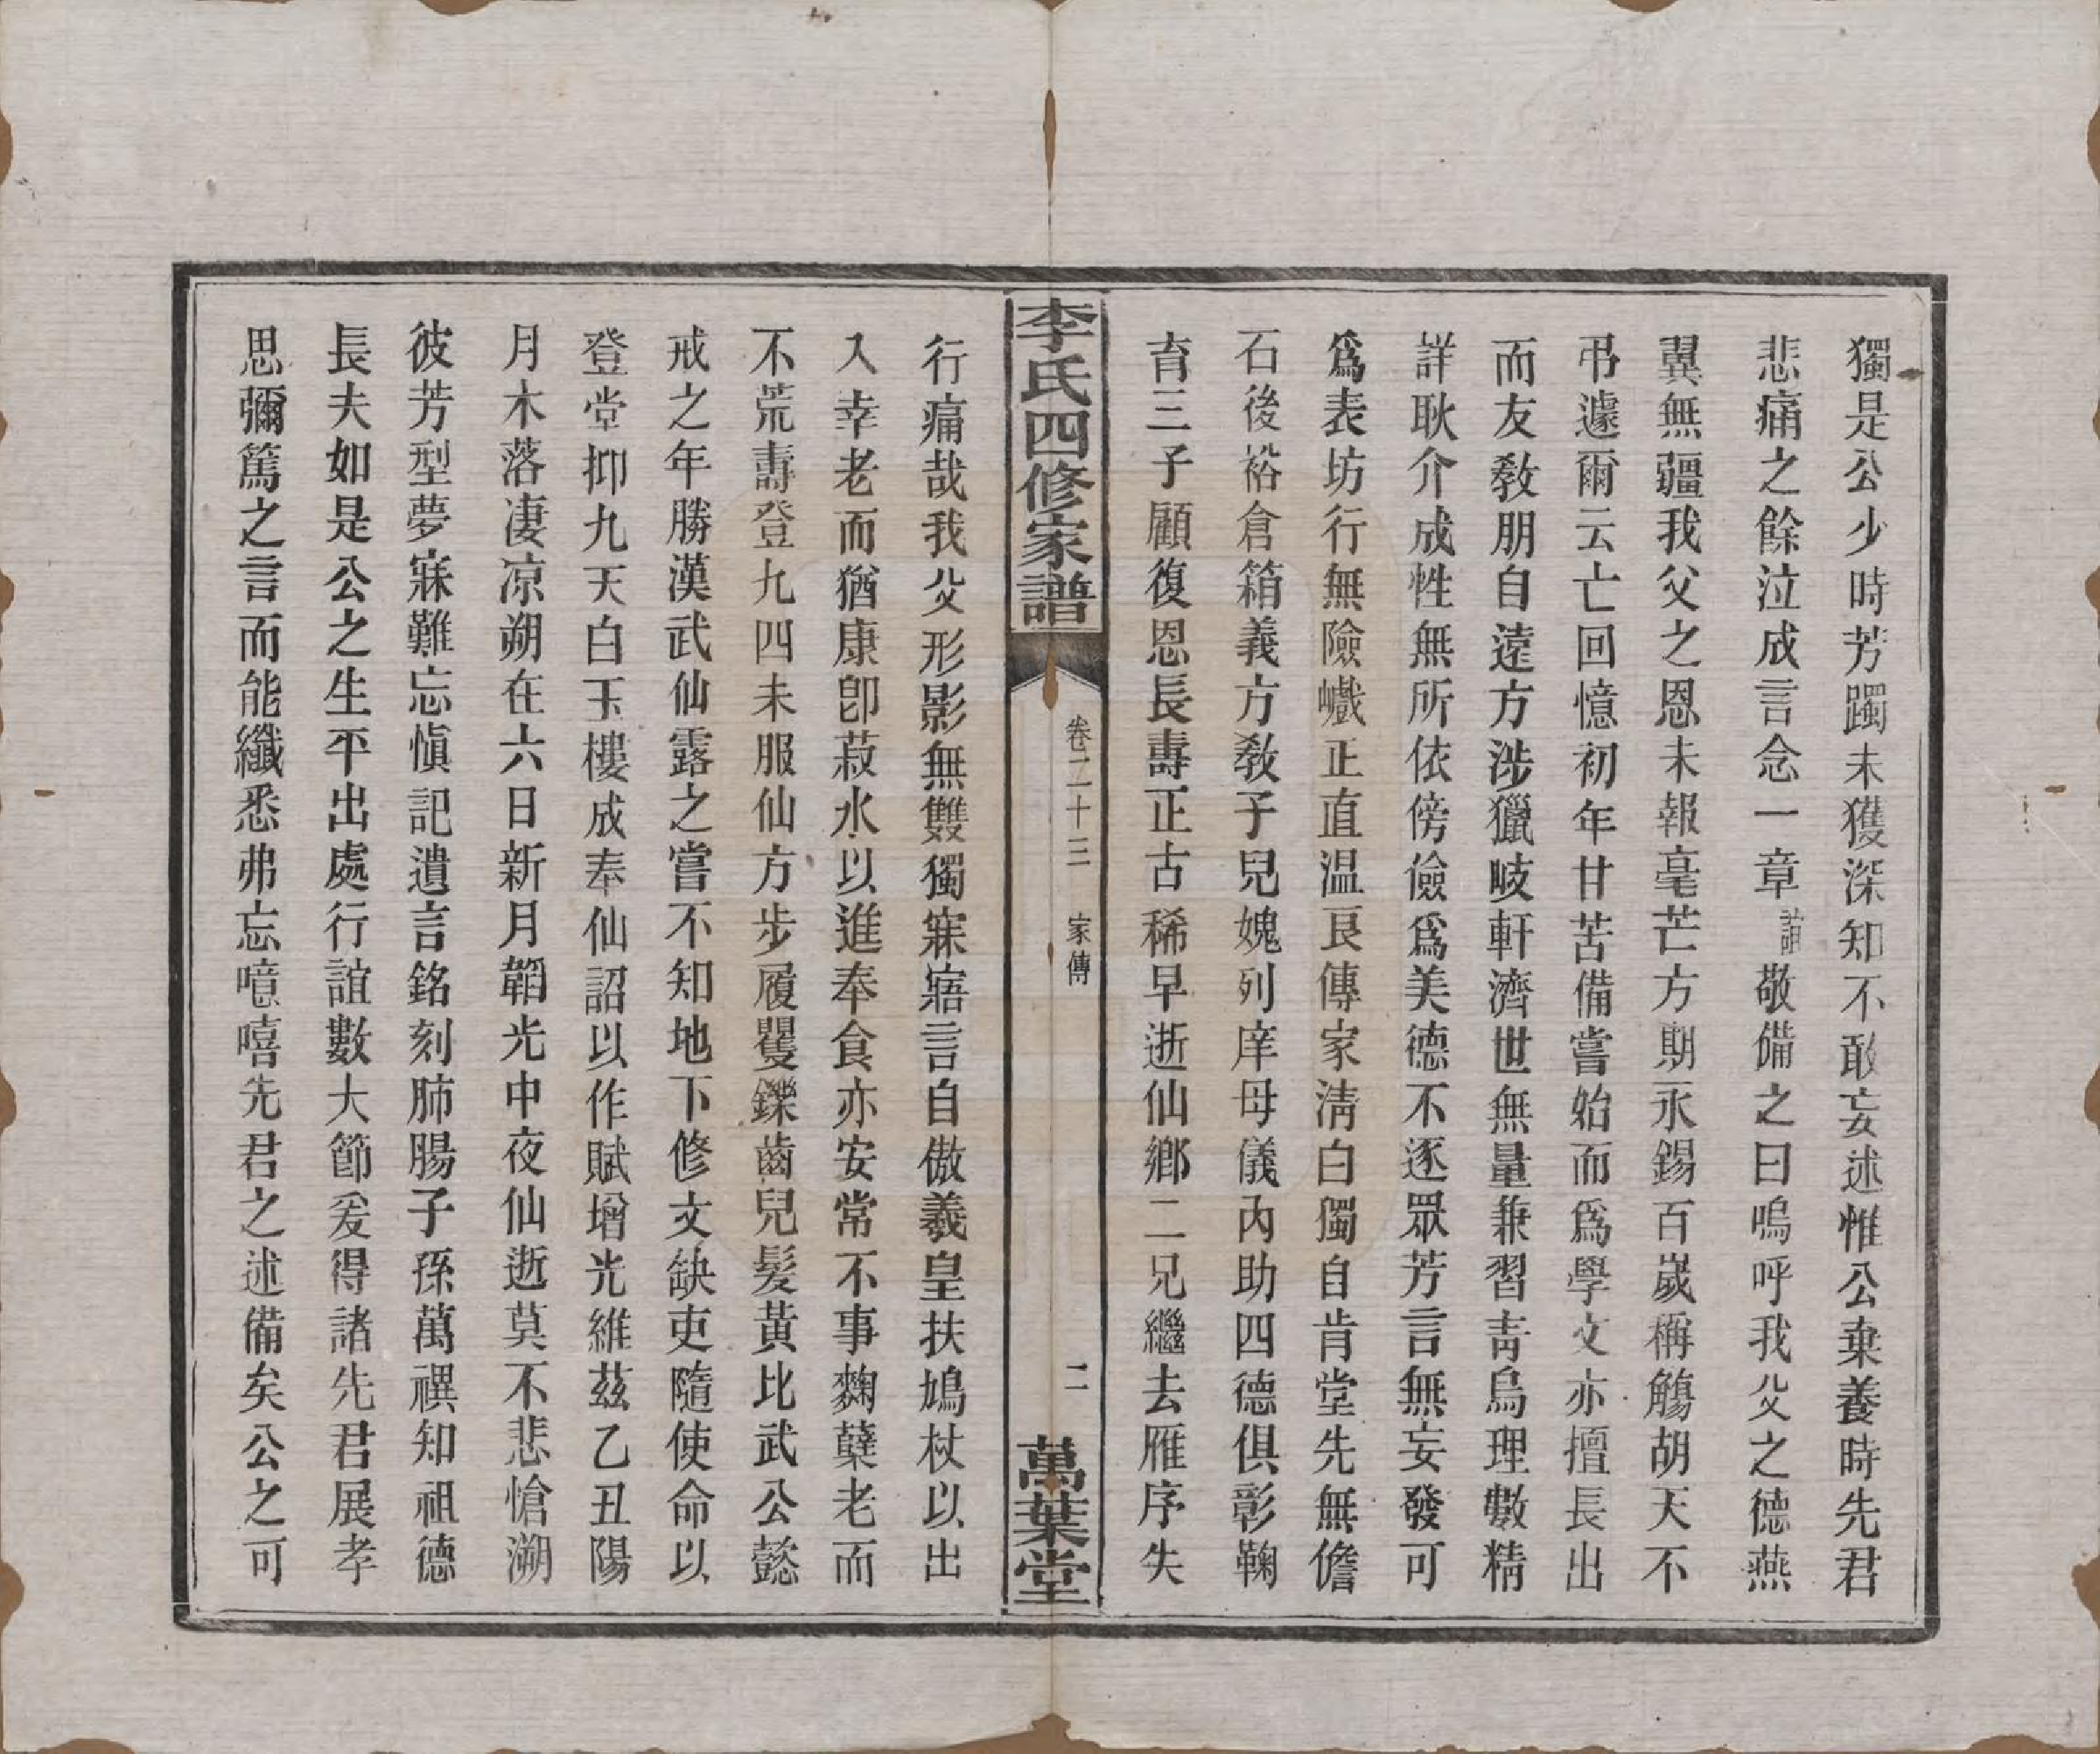 獨是公少時芳躅未獲深知不敢妄述惟公棄養時先君
悲痛之餘泣成言念一章謹敬備之曰嗚呼我父之德燕
翼無疆我父之恩未報毫芒方期永錫百嵗稱觴胡天不
弔遽爾云亡回憶初年甘苦備嘗始而爲學文亦擅長出
而友教朋自遠方涉獵岐軒濟世無量兼習靑烏理數精
詳耿介成性無所依傍儉爲美德不逐眾芳言無妄發可
爲表坊行無險巇正直温良傳家淸白獨自肯堂先無儋
石後裕倉箱義方教子兒媿列庠母儀內助四德俱彰鞠
育三子顧復恩長壽正古稀早逝仙鄉二兄繼去雁序失
李氏四修家譜
卷二十三 家傳
二
萬葉堂
行痛哉我父形影無雙獨寐寤言自傲羲皇扶鳩杖以出
入幸老而猶康卽菽水以進奉食亦安常不事麴糵老而
不荒壽登九四未服仙方步履矍鑠齒兒髮黃比武公懿
戒之年勝漢武仙露之嘗不知地下修文缺吏隨使命以
登堂抑九天白玉樓成奉仙詔以作賦增光維茲乙丑陽
月木落淒凉朔在六日新月韜光中夜仙逝莫不悲愴溯
彼芳型夢寐難忘愼記遺言銘刻肺腸子孫萬禩知祖德
長夫如是公之生平出處行誼數大節爰得諸先君展孝
思彌篤之言而能纖悉弗忘噫嘻先君之述備矣公之可